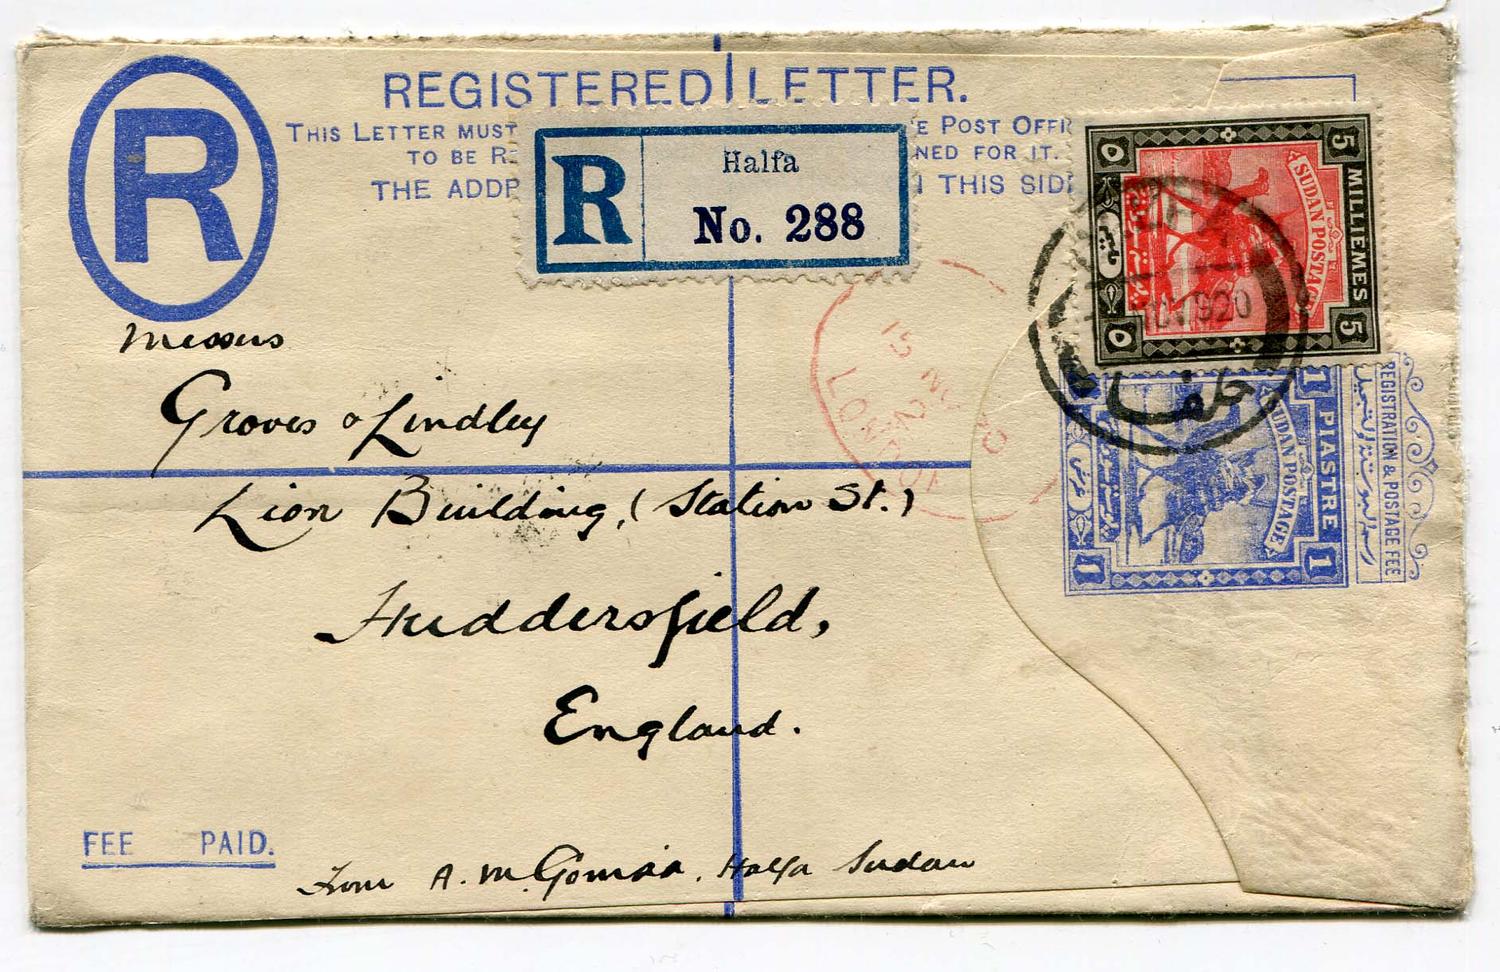 R
REGISTERED LETTER.
THIS LETTER MUST E POST OFFI
TO BE R NED FOR IT.
THE ADD THIS SID
R
Halfa
No. 288
5 MILLIEMES 5
SUDAN POSTAGE
٥ ٥
1920
حلفا
1 PIASTRE 1
SUDAN POSTAGE
REGISTRATION & POSTAGE FEE
15 NO 20
LONDON
Messers
Groves & Lindley
Lion Building, (Station St.)
Huddersfield,
England.
FEE PAID.
From A. M. Gomaa. Halfa Sudan